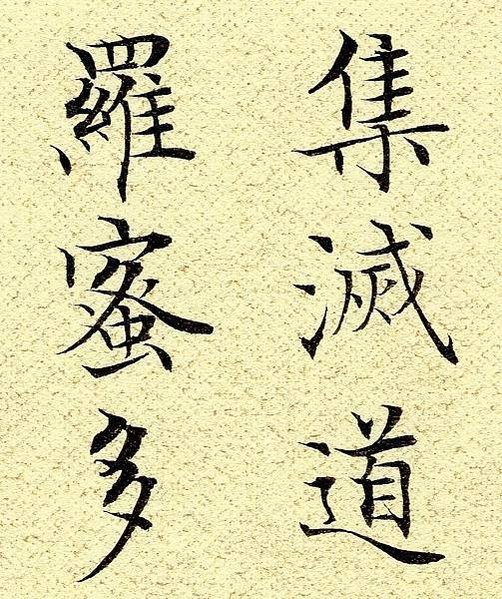 集滅道
羅蜜多